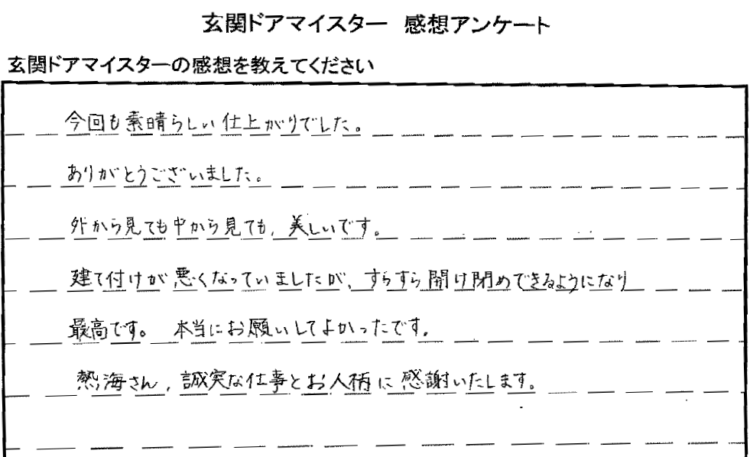 玄関ドアマイスター 感想アンケート
玄関ドアマイスターの感想を教えてください
今回も素晴らしい仕上がりでした。
ありがとうございました。
外から見ても中から見ても、美しいです。
建て付けが悪くなっていましたが、すらすら開け閉めできるようになり
最高です。 本当にお願いしてよかったです。
熱海さん、誠実な仕事とお人柄に感謝いたします。